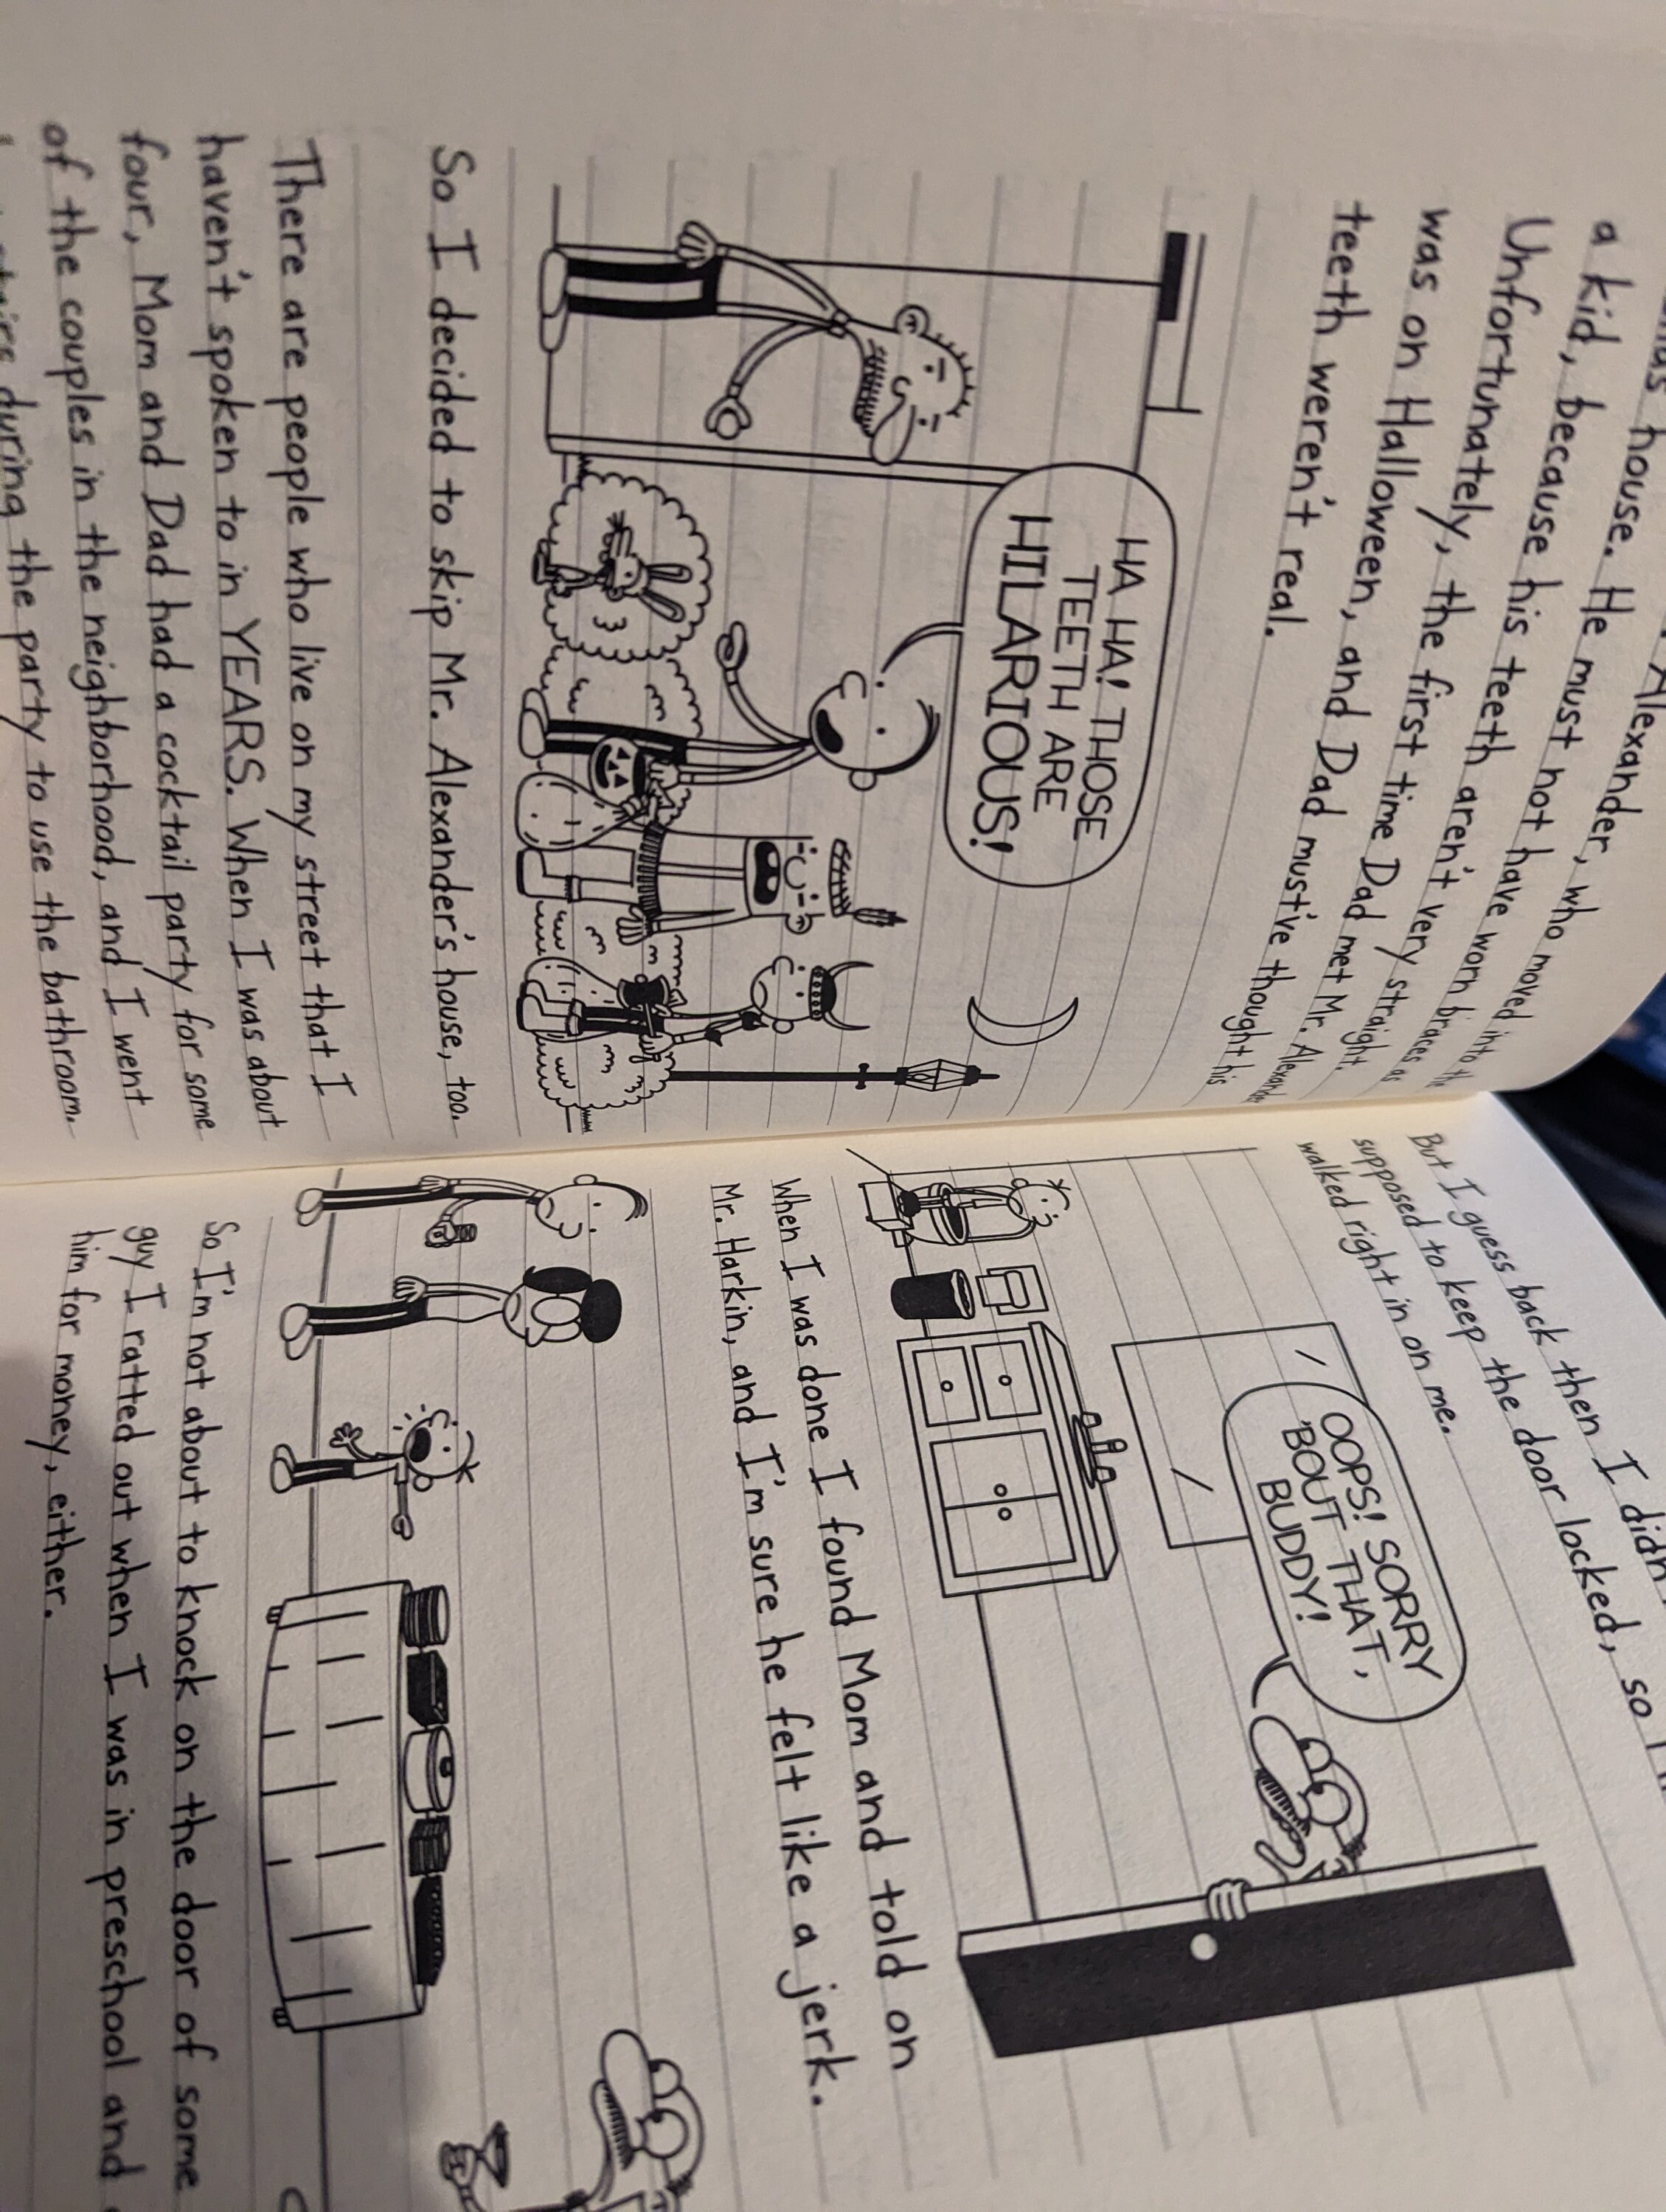 house. He must not have worn braces as
a kid, because his teeth aren't very straight.
Unfortunately, the first time Dad met Mr. Alexander
was on Halloween, and Dad must've thought his
teeth weren't real.
HA HA! THOSE
TEETH ARE
HILARIOUS!
So I decided to skip Mr. Alexander's house, too.
There are people who live on my street that I
haven't spoken to in YEARS. When I was about
four, Mom and Dad had a cocktail party for some
of the couples in the neighborhood, and I went
during the party to use the bathroom.
But I guess back then I didn't
supposed to keep the door locked, so
walked right in on me.
OOPS! SORRY
'BOUT THAT,
BUDDY!
When I was done I found Mom and told on
Mr. Harkin, and I'm sure he felt like a jerk.
So I'm not about to knock on the door of some
guy I ratted out when I was in preschool and
him for money, either.